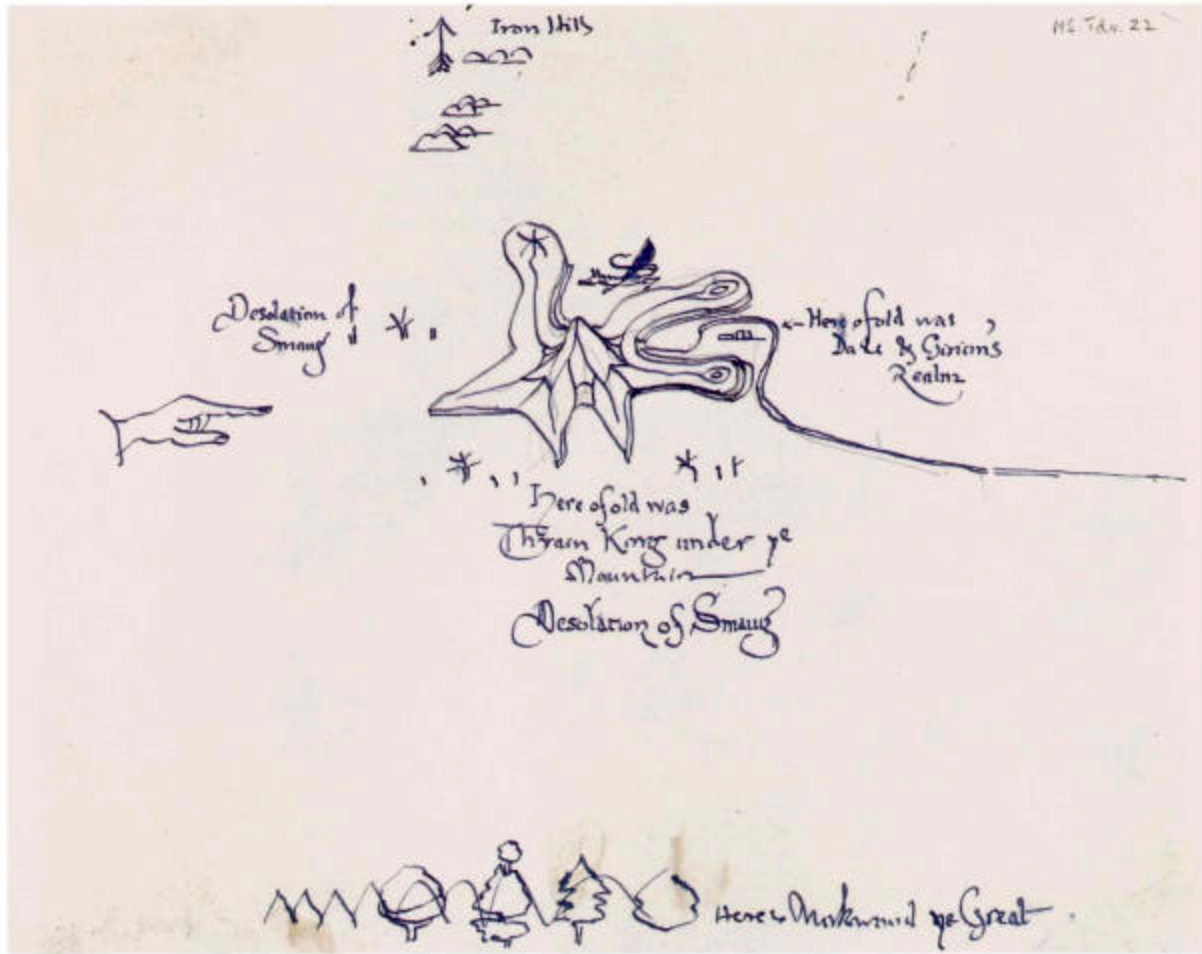 Iron Hills
MS. Tkn. 22
Desolation of
Smaug
Here of old was
Dale & Girions
Realm
Here of old was
Thrain King under ye
Mountain
Desolation of Smaug
Here is Mirkwood ye Great